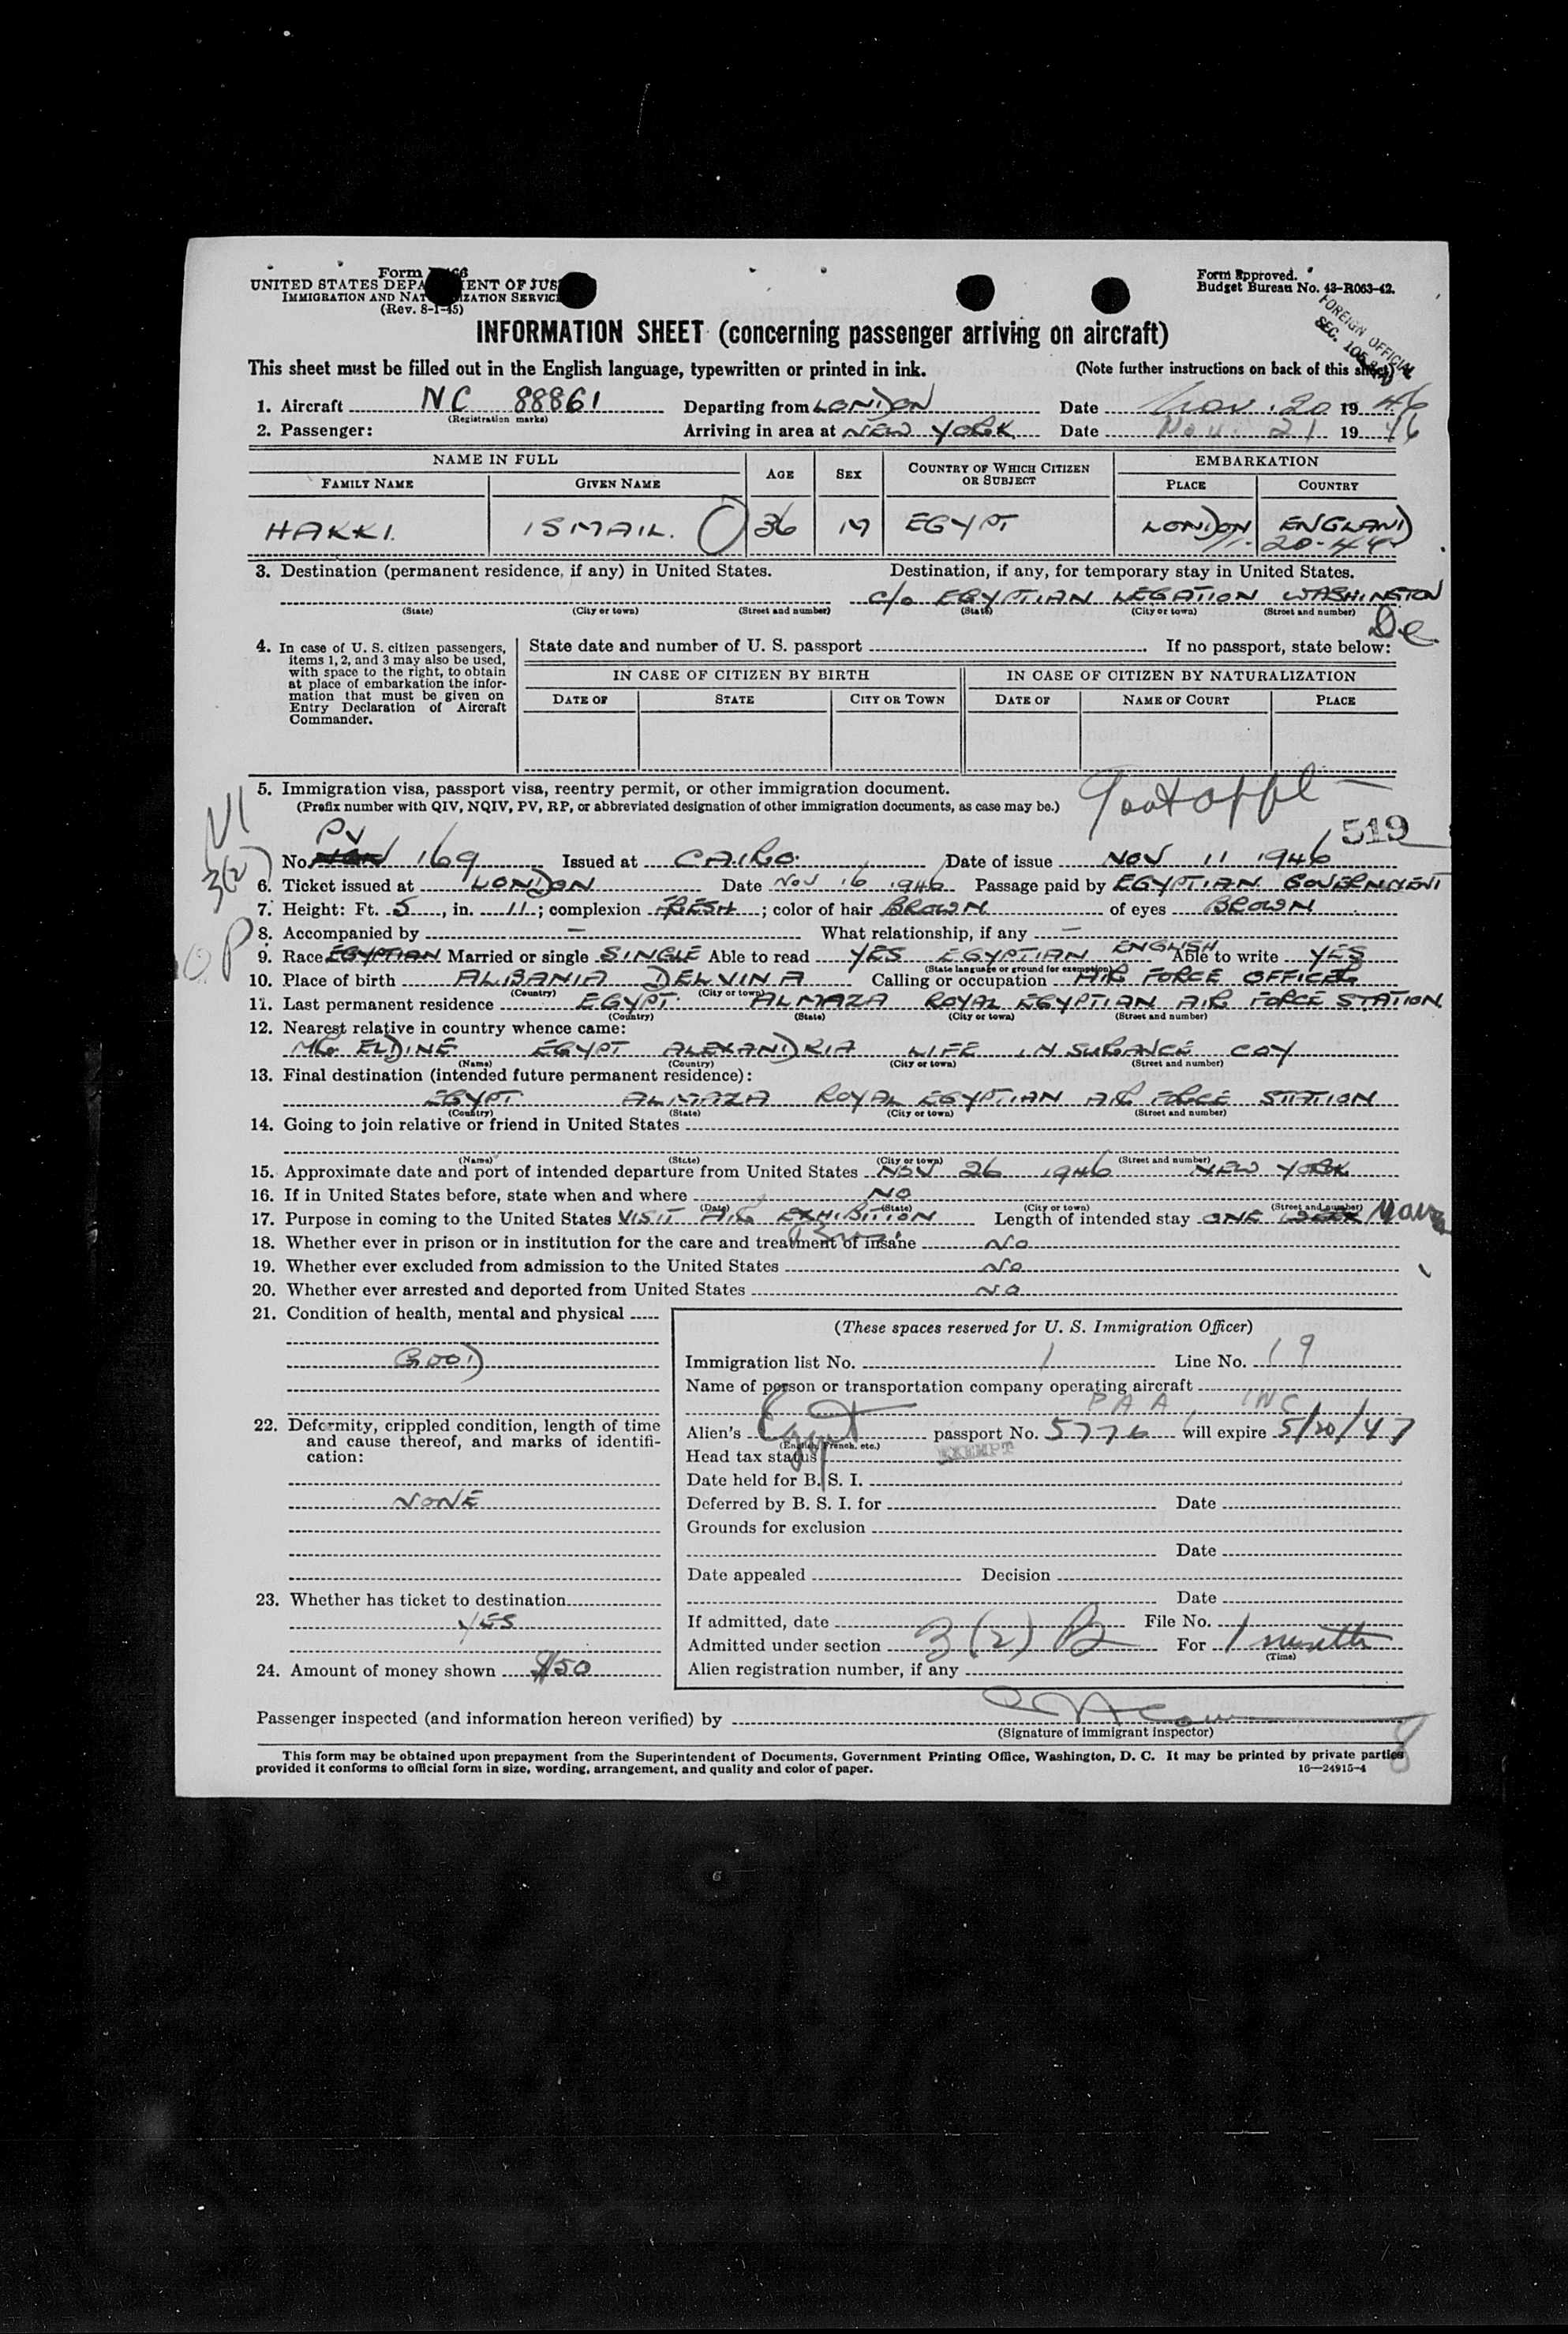 Form
UNITED STATES DEPARTMENT OF JUSTICE
IMMIGRATION AND NATURALIZATION SERVICE
(Rev. 8-1-45)
Form approved.
Budget Bureau No. 43-R063-42.
FOREIGN OFFICIAL
SEC.
INFORMATION SHEET (concerning passenger arriving on aircraft)
This sheet must be filled out in the English language, typewritten or printed in ink. (Note further instructions on back of this sheet)
1. Aircraft NC 88861 Departing from LONDON Date Nov. 20 19 46
(Registration marks)
2. Passenger: Arriving in area at NEW YORK Date Nov. 21 19 46
NAME IN FULL AGE SEX COUNTRY OF WHICH CITIZEN OR SUBJECT EMBARKATION
FAMILY NAME GIVEN NAME PLACE COUNTRY
HAKKI. ISMAIL. 36 M EGYPT LONDON ENGLAND
3. Destination (permanent residence, if any) in United States. Destination, if any, for temporary stay in United States.
c/o EGYPTIAN LEGATION WASHINGTON
(State) (City or town) (Street and number) (State) (City or town) (Street and number)
DC
4. In case of U. S. citizen passengers, items 1, 2, and 3 may also be used, with space to the right, to obtain at place of embarkation the information that must be given on Entry Declaration of Aircraft Commander.
State date and number of U. S. passport If no passport, state below:
IN CASE OF CITIZEN BY BIRTH IN CASE OF CITIZEN BY NATURALIZATION
DATE OF STATE CITY OR TOWN DATE OF NAME OF COURT PLACE
5. Immigration visa, passport visa, reentry permit, or other immigration document.
(Prefix number with QIV, NQIV, PV, RP, or abbreviated designation of other immigration documents, as case may be.)
519
PV
No. 169 Issued at CAIRO Date of issue NOV 11 1946
3(2)
6. Ticket issued at LONDON Date NOV 16 1946 Passage paid by EGYPTIAN GOVERNMENT
7. Height: Ft. 5, in. 11; complexion FRESH; color of hair BROWN of eyes BROWN
8. Accompanied by – What relationship, if any –
9. Race EGYPTIAN Married or single SINGLE Able to read YES EGYPTIAN ENGLISH Able to write YES
(State language or ground for exemption)
10. Place of birth ALBANIA DELVINA Calling or occupation AIR FORCE OFFICER
(Country) (City or town)
11. Last permanent residence EGYPT ALMAZA ROYAL EGYPTIAN AIR FORCE STATION
(Country) (State) (City or town) (Street and number)
12. Nearest relative in country whence came:
MR. ELDINE EGYPT ALEXANDRIA LIFE INSURANCE COY
(Name) (Country) (City or town) (Street and number)
13. Final destination (intended future permanent residence):
EGYPT ALMAZA ROYAL EGYPTIAN AIR FORCE STATION
(Country) (State) (City or town) (Street and number)
14. Going to join relative or friend in United States
(Name) (State) (City or town) (Street and number)
15. Approximate date and port of intended departure from United States NOV 26 1946 NEW YORK
16. If in United States before, state when and where NO
(Date) (State) (City or town) (Street and number)
17. Purpose in coming to the United States VISIT AIR EXHIBITION Length of intended stay ONE
18. Whether ever in prison or in institution for the care and treatment of insane NO
19. Whether ever excluded from admission to the United States NO
20. Whether ever arrested and deported from United States NO
21. Condition of health, mental and physical
GOOD
22. Deformity, crippled condition, length of time and cause thereof, and marks of identification:
NONE
23. Whether has ticket to destination
YES
24. Amount of money shown $150
(These spaces reserved for U. S. Immigration Officer)
Immigration list No. 1 Line No. 19
Name of person or transportation company operating aircraft
PAA INC
Alien's Egypt passport No. 5776 will expire 5/20/47
(English, French, etc.)
Head tax status EXEMPT
Date held for B. S. I.
Deferred by B. S. I. for Date
Grounds for exclusion
Date
Date appealed Decision
Date
If admitted, date File No.
Admitted under section 3(2) For 1 month
(Time)
Alien registration number, if any
Passenger inspected (and information hereon verified) by
(Signature of immigrant inspector)
8
This form may be obtained upon prepayment from the Superintendent of Documents, Government Printing Office, Washington, D. C. It may be printed by private parties
provided it conforms to official form in size, wording, arrangement, and quality and color of paper. 16—24915-4
6